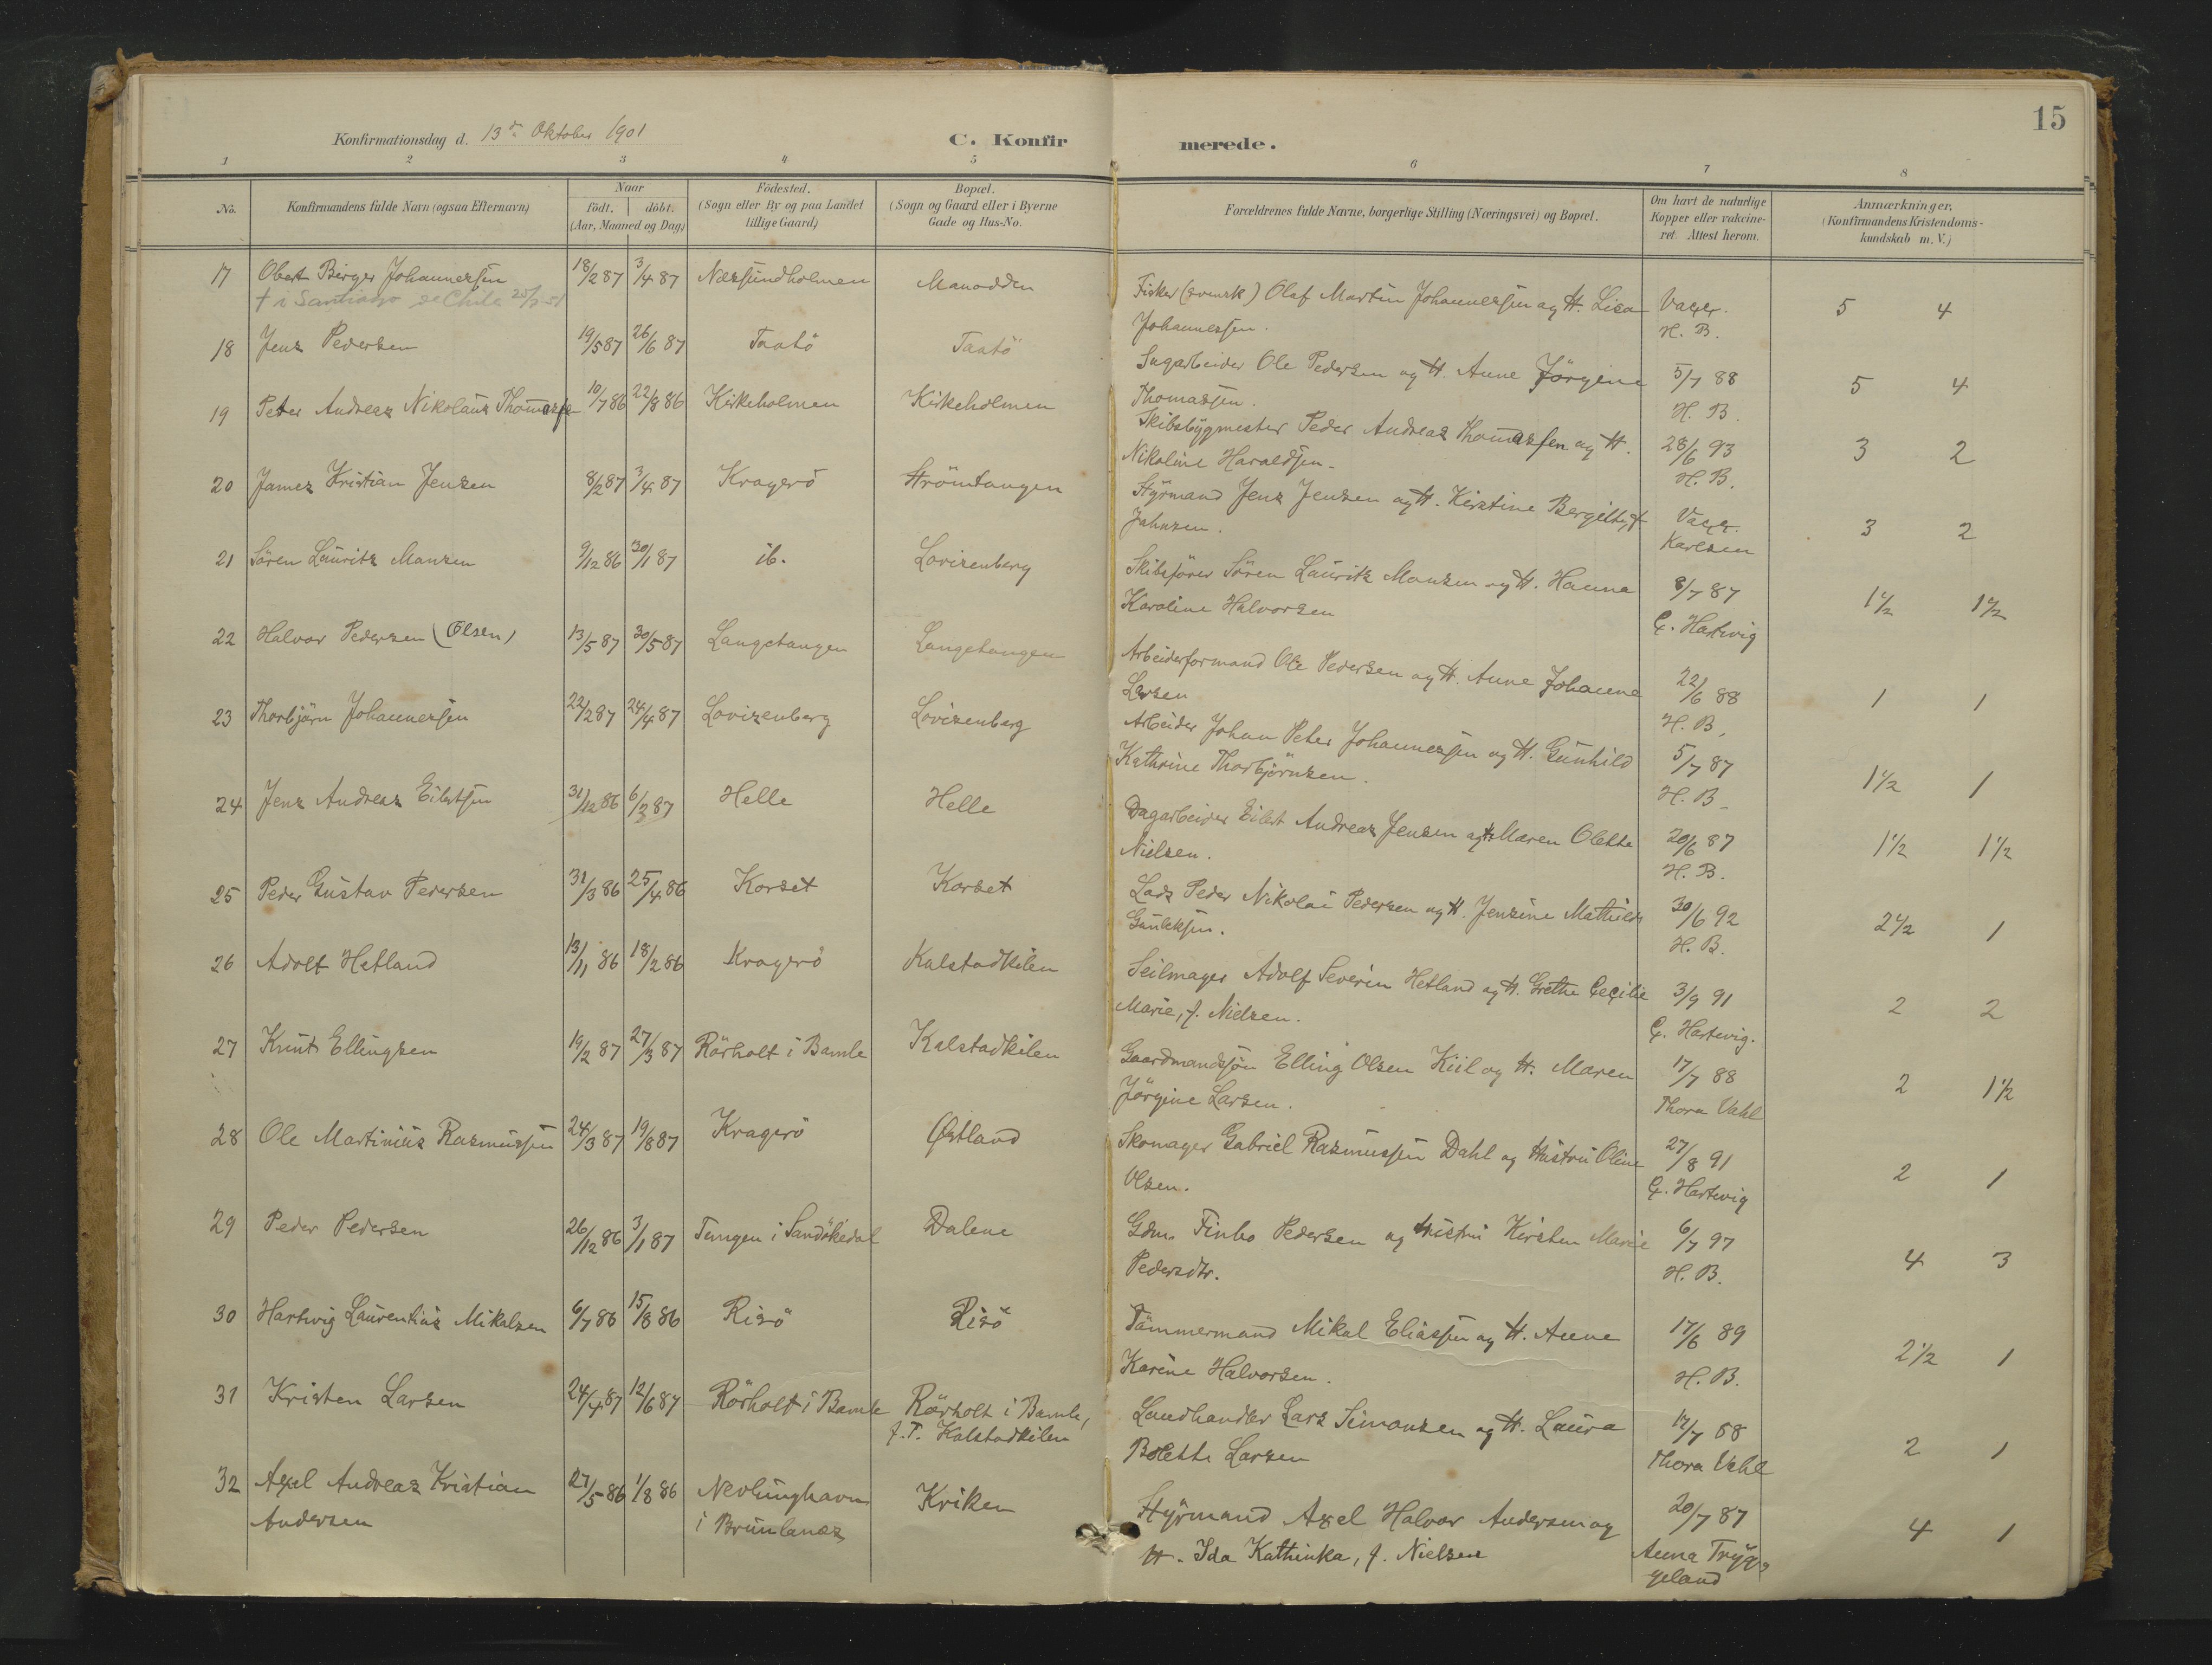 15
Konfirmationsdag d. 13de Oktober 1901
C. Konfirmerede.
1 2 3 4 5 6 7 8
No.
Konfirmandens fulde Navn (ogsaa Efternavn)
Naar
födt. döbt.
(Aar, Maaned og Dag)
Födested.
(Sogn eller By og paa Landet
tillige Gaard)
Bopæl.
(Sogn og Gaard eller i Byerne
Gade og Hus-No.
Forældrenes fulde Navne, borgerlige Stilling (Næringsvei) og Bopæl.
Om havt de naturlige
Kopper eller vakcine-
ret. Attest herom.
Anmærkninger.
(Konfirmandens Kristendoms-
kundskab m. V.)
17 Obert Birger Johannessen 18/2 87 3/4 87 Næssundholmen Manodden Fisker (svensk) Olaf Martin Johannessen og H. Lisa Vaxx. 5 4
† i Santiago de Chile Johannessen. H. B.
18 Jens Pedersen 19/5 87 26/6 87 Taatö Taatö Sagarbeider Ole Pedersen og H. Anne Jörgine 5/7 88 5 4
Thomassen. H. B.
19 Peter Andreas Nikolaus Thomassen 10/7 86 22/8 86 Kirkeholmen Kirkeholmen Skibsbygmester Peder Andreas Thomassen og H. 28/6 93 3 2
Nikoline Haraldsen. H. B.
20 James Kristian Jensen 8/2 87 3/4 87 Kragerö Strömtangen Styrmand Jens Jensen og H. Kirstine Bergitte, f. Vaxx. 3 2
Jahnsen. Karlsen
21 Sören Lauritz Monsen 9/12 86 30/1 87 ib. Lovisenberg Skibsförer Sören Lauritz Monsen og H. Hanna 8/7 87 1 1/2 1 1/2
Karoline Halvorsen C. Hartvig
22 Halvor Pedersen (Olsen) 13/5 87 30/5 87 Langetangen Langetangen Arbeiderformand Ole Pedersen og H. Anne Johanne 22/6 88 1 1
Larsen H. B.
23 Thorbjörn Johannessen 22/2 87 24/4 87 Lovisenberg Lovisenberg Arbeider Johan Peter Johannessen og H. Gunhild 5/7 87 1 1/2 1
Kathrine Thorbjörnsen. H. B.
24 Jens Andreas Eilertsen 31/12 86 6/3 87 Helle Helle Dagarbeider Eilert Andreas Jensen og H. Maren Olette 20/6 87 1 1/2 1 1/2
Nielsen. H. B.
25 Peder Gustav Pedersen 31/3 86 25/4 86 Korset Korset Lods Peder Nikolai Pedersen og H. Jensine Mathilde 30/6 92 2 1/2 1
Gauleksen. H. B.
26 Adolf Hetland 13/11 86 18/2 86 Kragerö Kalstadkilen Seilmager Adolf Severin Hetland og H. Grethe Cecilie 3/9 91 2 2
Marie, f. Nielsen. C. Hartvig.
27 Knut Ellingsen 19/2 87 27/3 87 Rörholt i Bamle Kalstadkilen Gaardmandssøn Elling Olsen Kiil og H. Maren 17/7 88 2 1 1/2
Jörgine Larsen. Thora Vahl
28 Ole Martinius Rasmussen 24/3 87 19/8 87 Kragerö Østland Skomager Gabriel Rasmussen Dahl og Hustru Oline 27/8 91 2 1
Olsen. C. Hartvig
29 Peder Pedersen 26/12 86 3/1 87 Tungen i Sandökedal Dalene Gdm. Finbo Pedersen og Hustru Kirsten Marie 6/7 97 4 3
Pedersdtr. H. B.
30 Hartvig Laurentius Mikalsen 6/7 86 15/8 86 Risö Risö Tömmermand Mikal Eliassen og H. Anne 17/6 89 2 1/2 1
Karine Halvorsen. H. B.
31 Kristen Larsen 24/4 87 12/6 87 Rörholt i Bamle Rörholt i Bamle, Landhandler Lars Simonsen og H. Laura 12/7 88 2 1
f. T. Kalstadkilen Bolette Larsen Thora Vahl
32 Axel Andreas Kristian 27/5 86 1/8 86 Nevlunghavn Kriken Styrmand Axel Halvor Andersen og 20/7 87 4 1
Andersen i Brunlanæs H. Ida Kathinka, f. Nielsen Anna Tryg-
geland